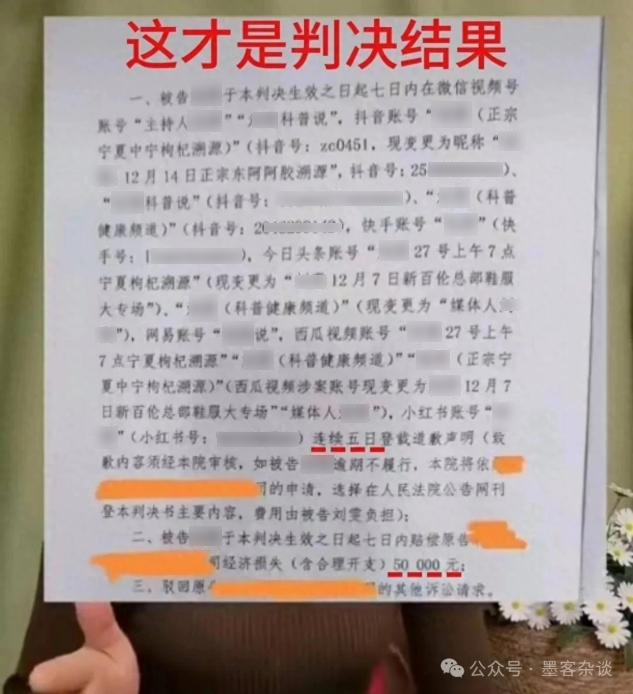 这才是判决结果
一、被告 于本判决生效之日起七日内在微信视频号
账号“主持人 ”“ 科普说”,抖音账号“ (正宗
宁夏中宁枸杞溯源)”(抖音号:zc0451,现变更为昵称“
12月14日正宗东阿阿胶溯源”,抖音号:25 )、
“ 科普说”(抖音号: )、“ (科普
健康频道)”(抖音号: ),快手账号“ ”(快
手号:1 ),今日头条账号“ 27号上午7点
宁夏枸杞溯源”(现变更为“ 12月7日新百伦总部鞋服
大专场”)、“ (科普健康频道)”(现变更为“媒体人
”),网易账号“ 说”,西瓜视频账号“ 27号上午
7点宁夏枸杞溯源”“ (科普健康频道)”“ (正宗宁
夏中宁枸杞溯源)”(西瓜视频涉案账号现变更为 12月7
日新百伦总部鞋服大专场”“媒体人 ”),小红书账号“
”(小红书号: )连续五日登载道歉声明(致
歉内容须经本院审核,如被告 逾期不履行,本院将依
司的申请,选择在人民法院公告网刊
登本判决书主要内容,费用由被告刘雯负担);
二、被告 于本判决生效之日起七日内赔偿原告
司经济损失(含合理开支)50 000元;
三、驳回原 的其他诉讼请求。
公众号·墨客杂谈